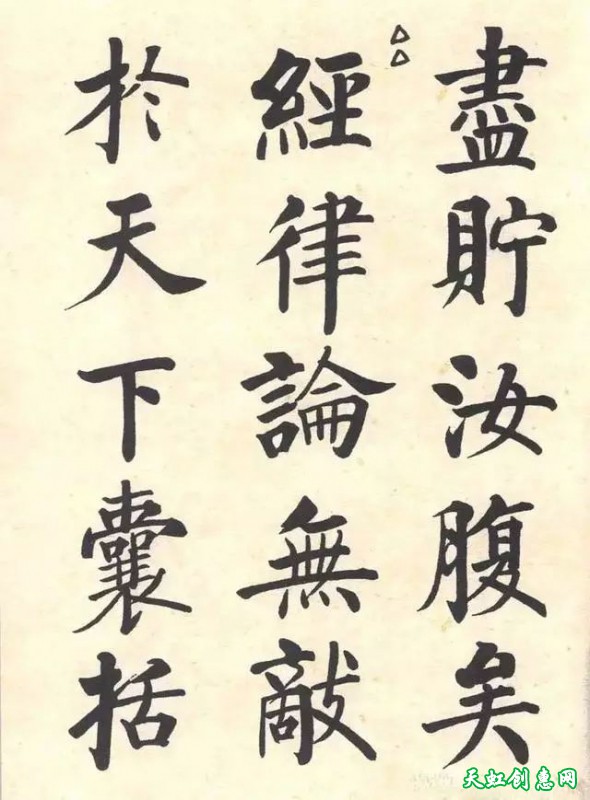 盡貯汝腹矣
經律論無敵
於天下囊括
天虹创惠网